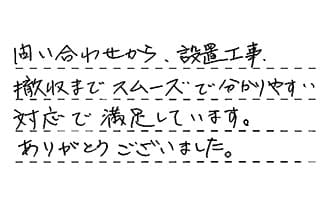 問い合わせから、設置工事、
撤収までスムーズで分かりやすい
対応で満足しています。
ありがとうございました。